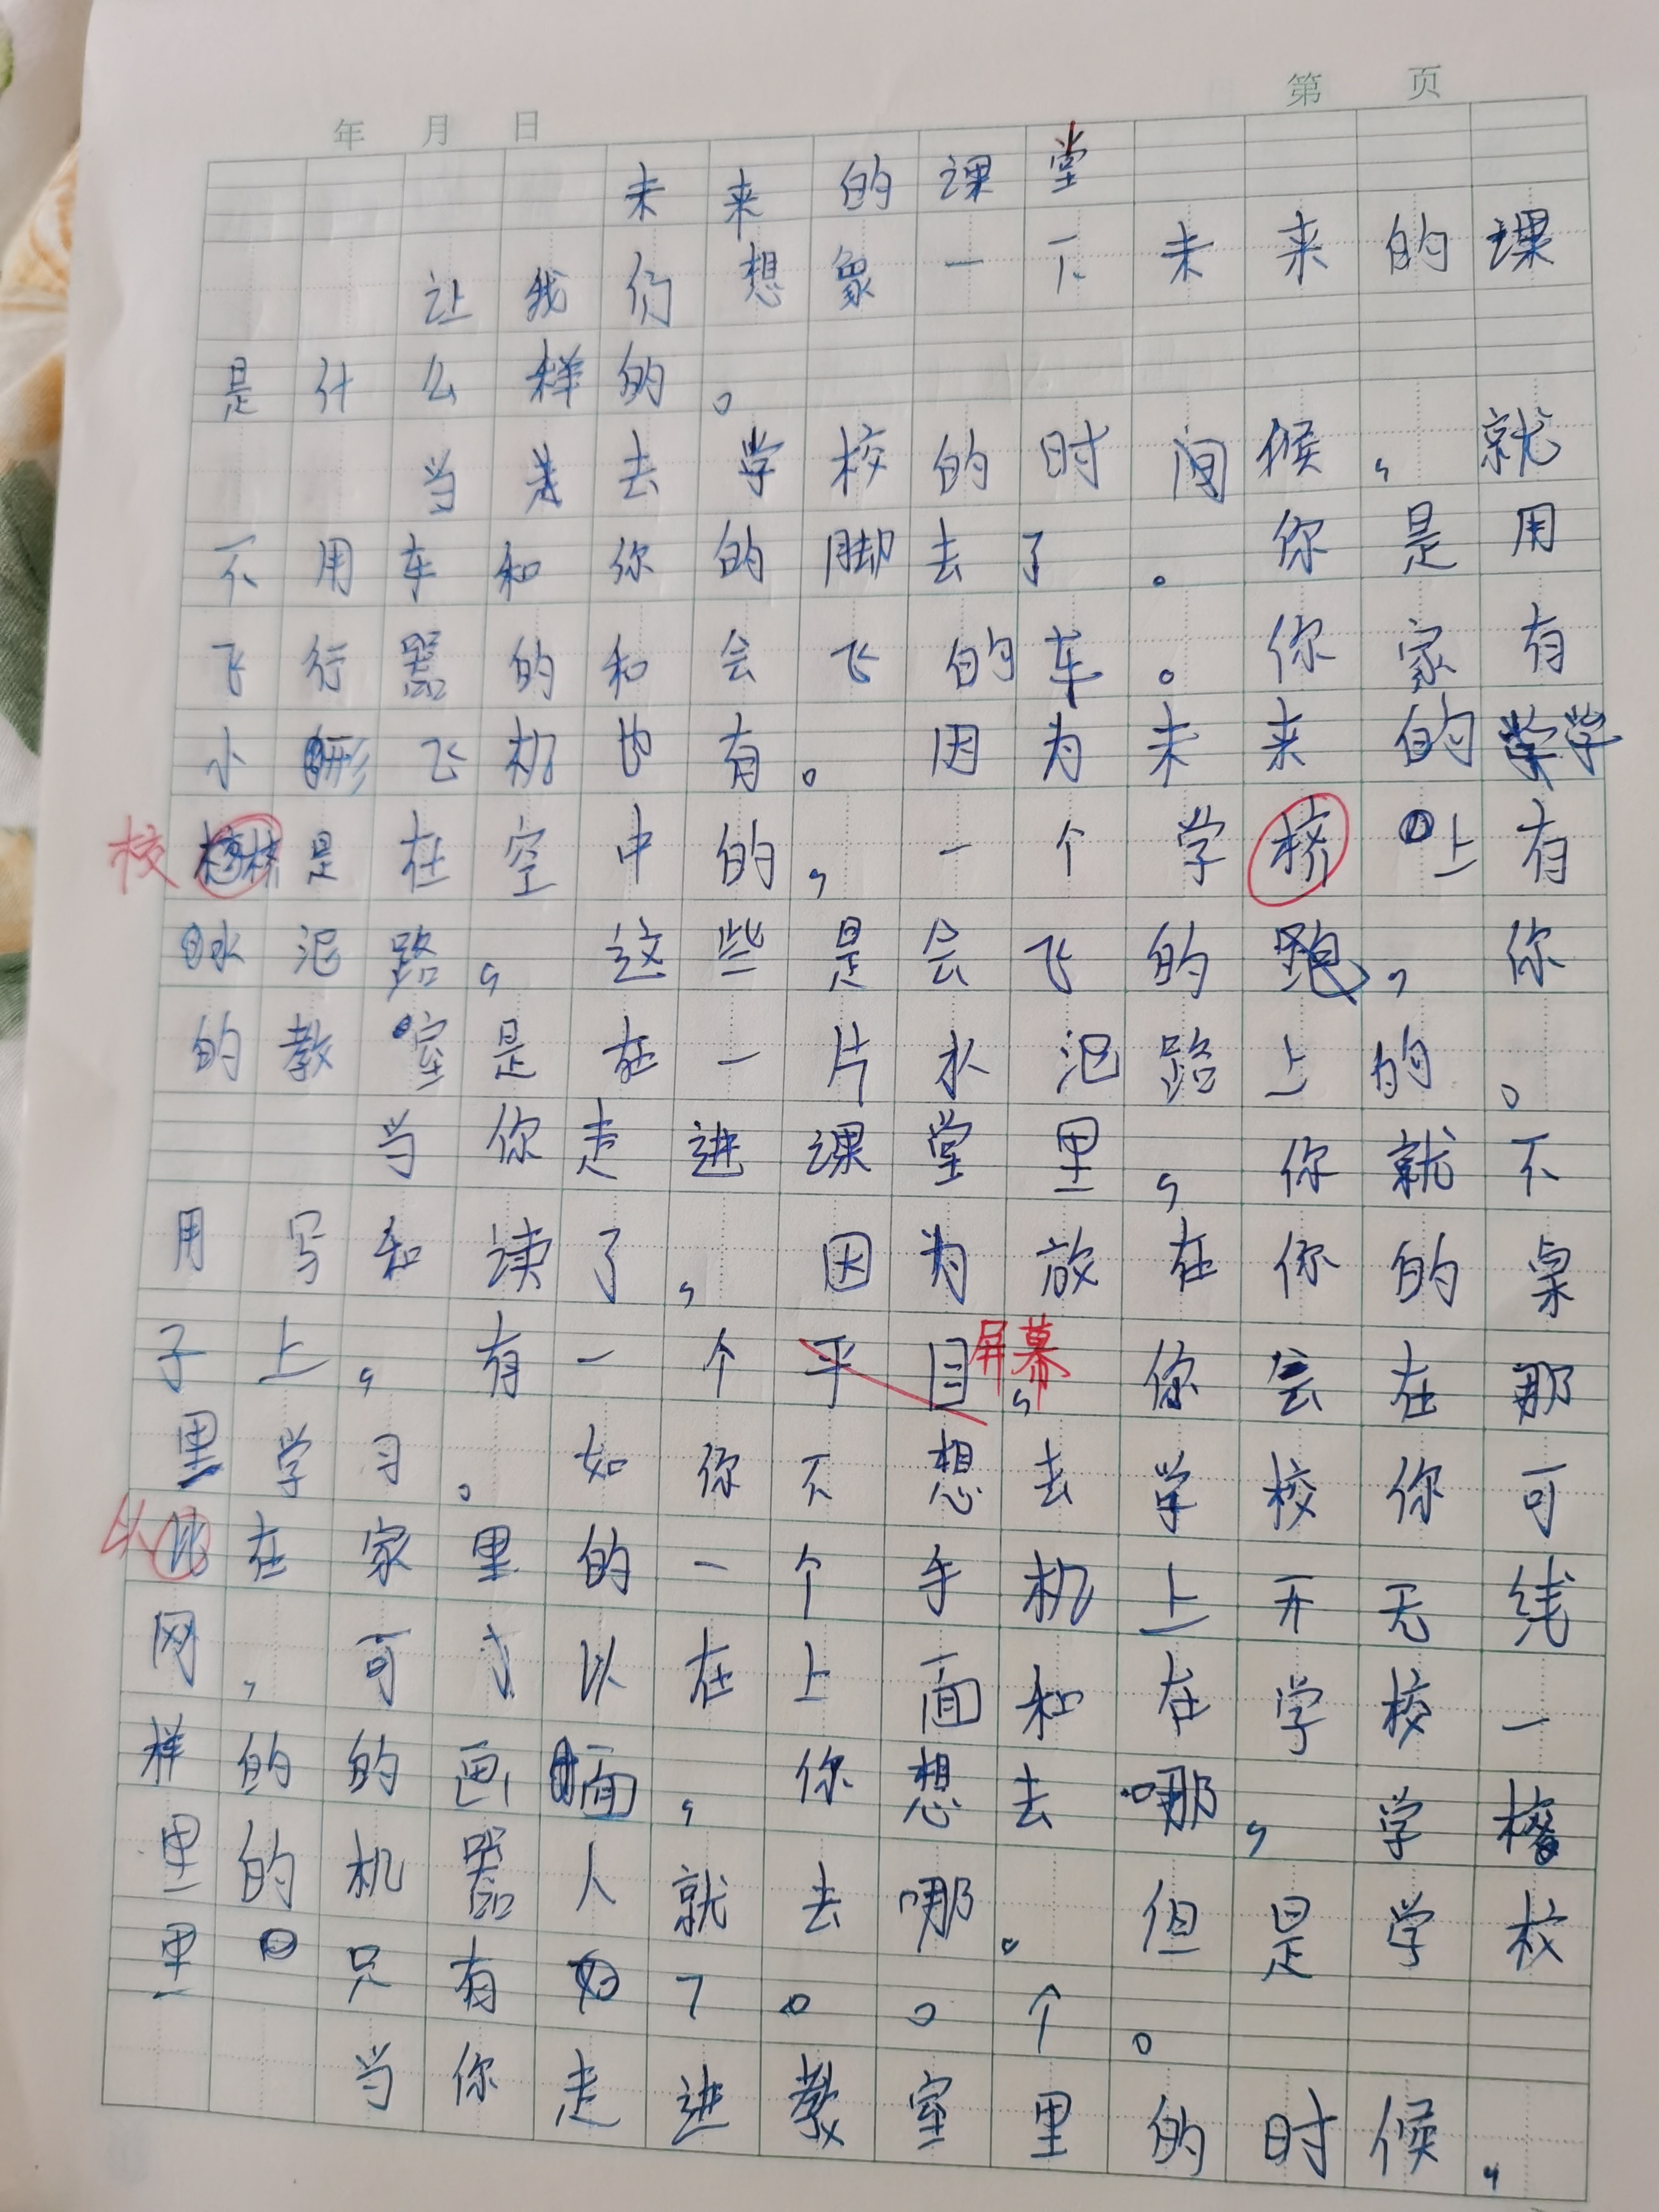 年 月 日 第 页
未来的课堂
让我们想象一下未来的课
是什么样的。
当走去学校的时间候，就
不用车和你的脚去了。你是用
飞行器的和会飞的车。你家有
小形飞机也有。因为未来的学
校 是在空中的，一个学桥上有
水泥路，这些是会飞的跑，你
的教室是在一片水泥路上的。
当你走进课堂里，你就不
用写和读了，因为放在你的桌
子上，有一个平目屏幕，你会在那
里学习。如你不想去学校你可
以在家里的一个手机上开无线
网，可以在上面和在学校一
样的的画面，你想去哪，学校
里的机器人就去哪。但是学校
里只有 个。
当你走进教室里的时候，